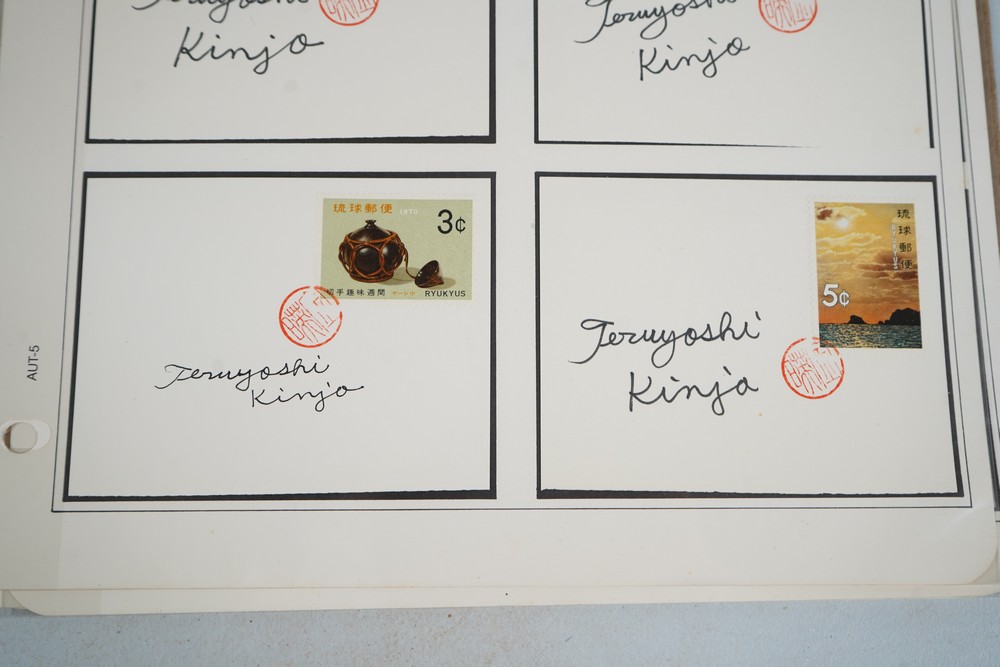 Teruyoshi
Kinjo
Teruyoshi
Kinjo
琉球郵便 1970
3¢
切手趣味週間 RYUKYUS
Teruyoshi
Kinjo
琉球郵便
RYUKYUS
5¢
Teruyoshi
Kinjo
AUT-5